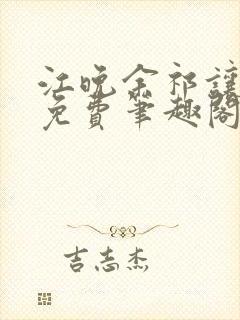 江晚余祁让
免费笔趣阁
吉志杰